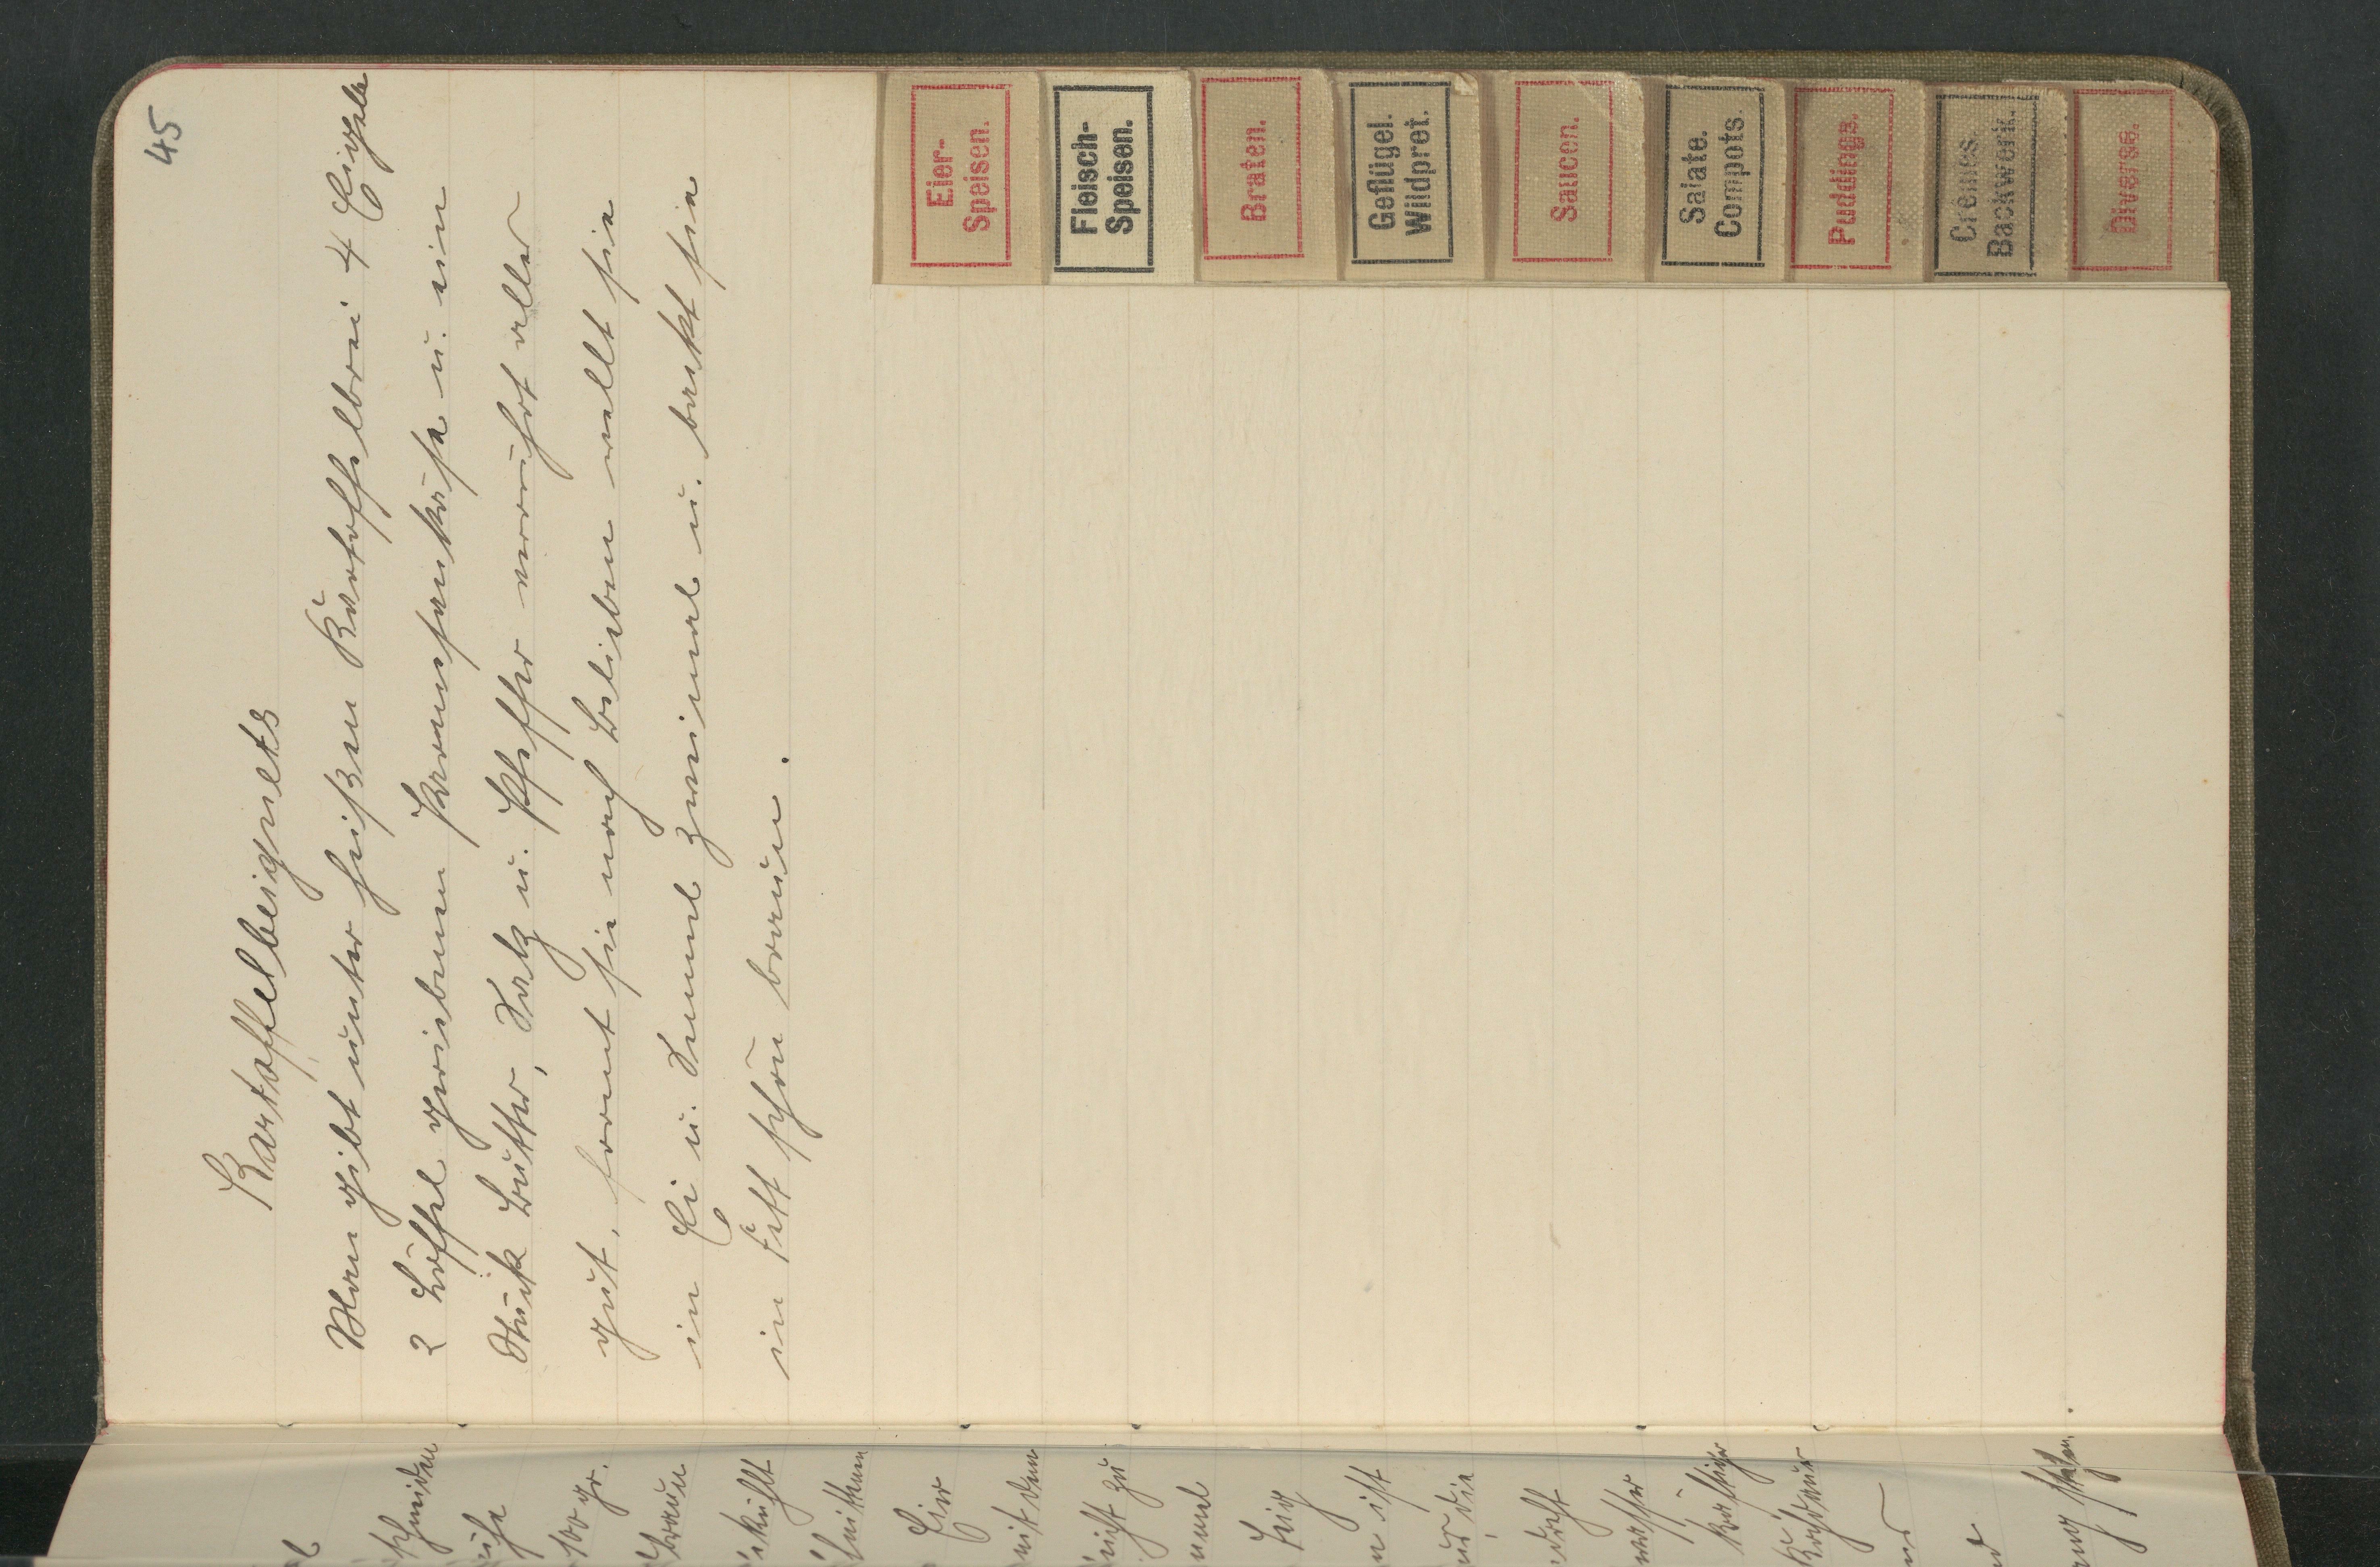 45
Kartoffelbeignets
Man gibt unter heißen Kartoffelbrei 4 Eigelb
2 Löffel geriebenen Parmesankäse u. ein
Stück Butter, Salz u. Pfeffer verrührt alles
gut, formt sie nach Belieben wellt sie
in Ei u. Semmel zweimal u. backt sie
in Fett schön braun.
Eier-
Speisen.
Fleisch-
Speisen.
Braten.
Geflügel.
Wildpret.
Saucen.
Salate.
Compots.
Puddings.
Crèmes.
Backwerk.
Diverse.
schneiden
100 gr.
braun
Eier
mit dem
nicht zu
Teig
ist
die